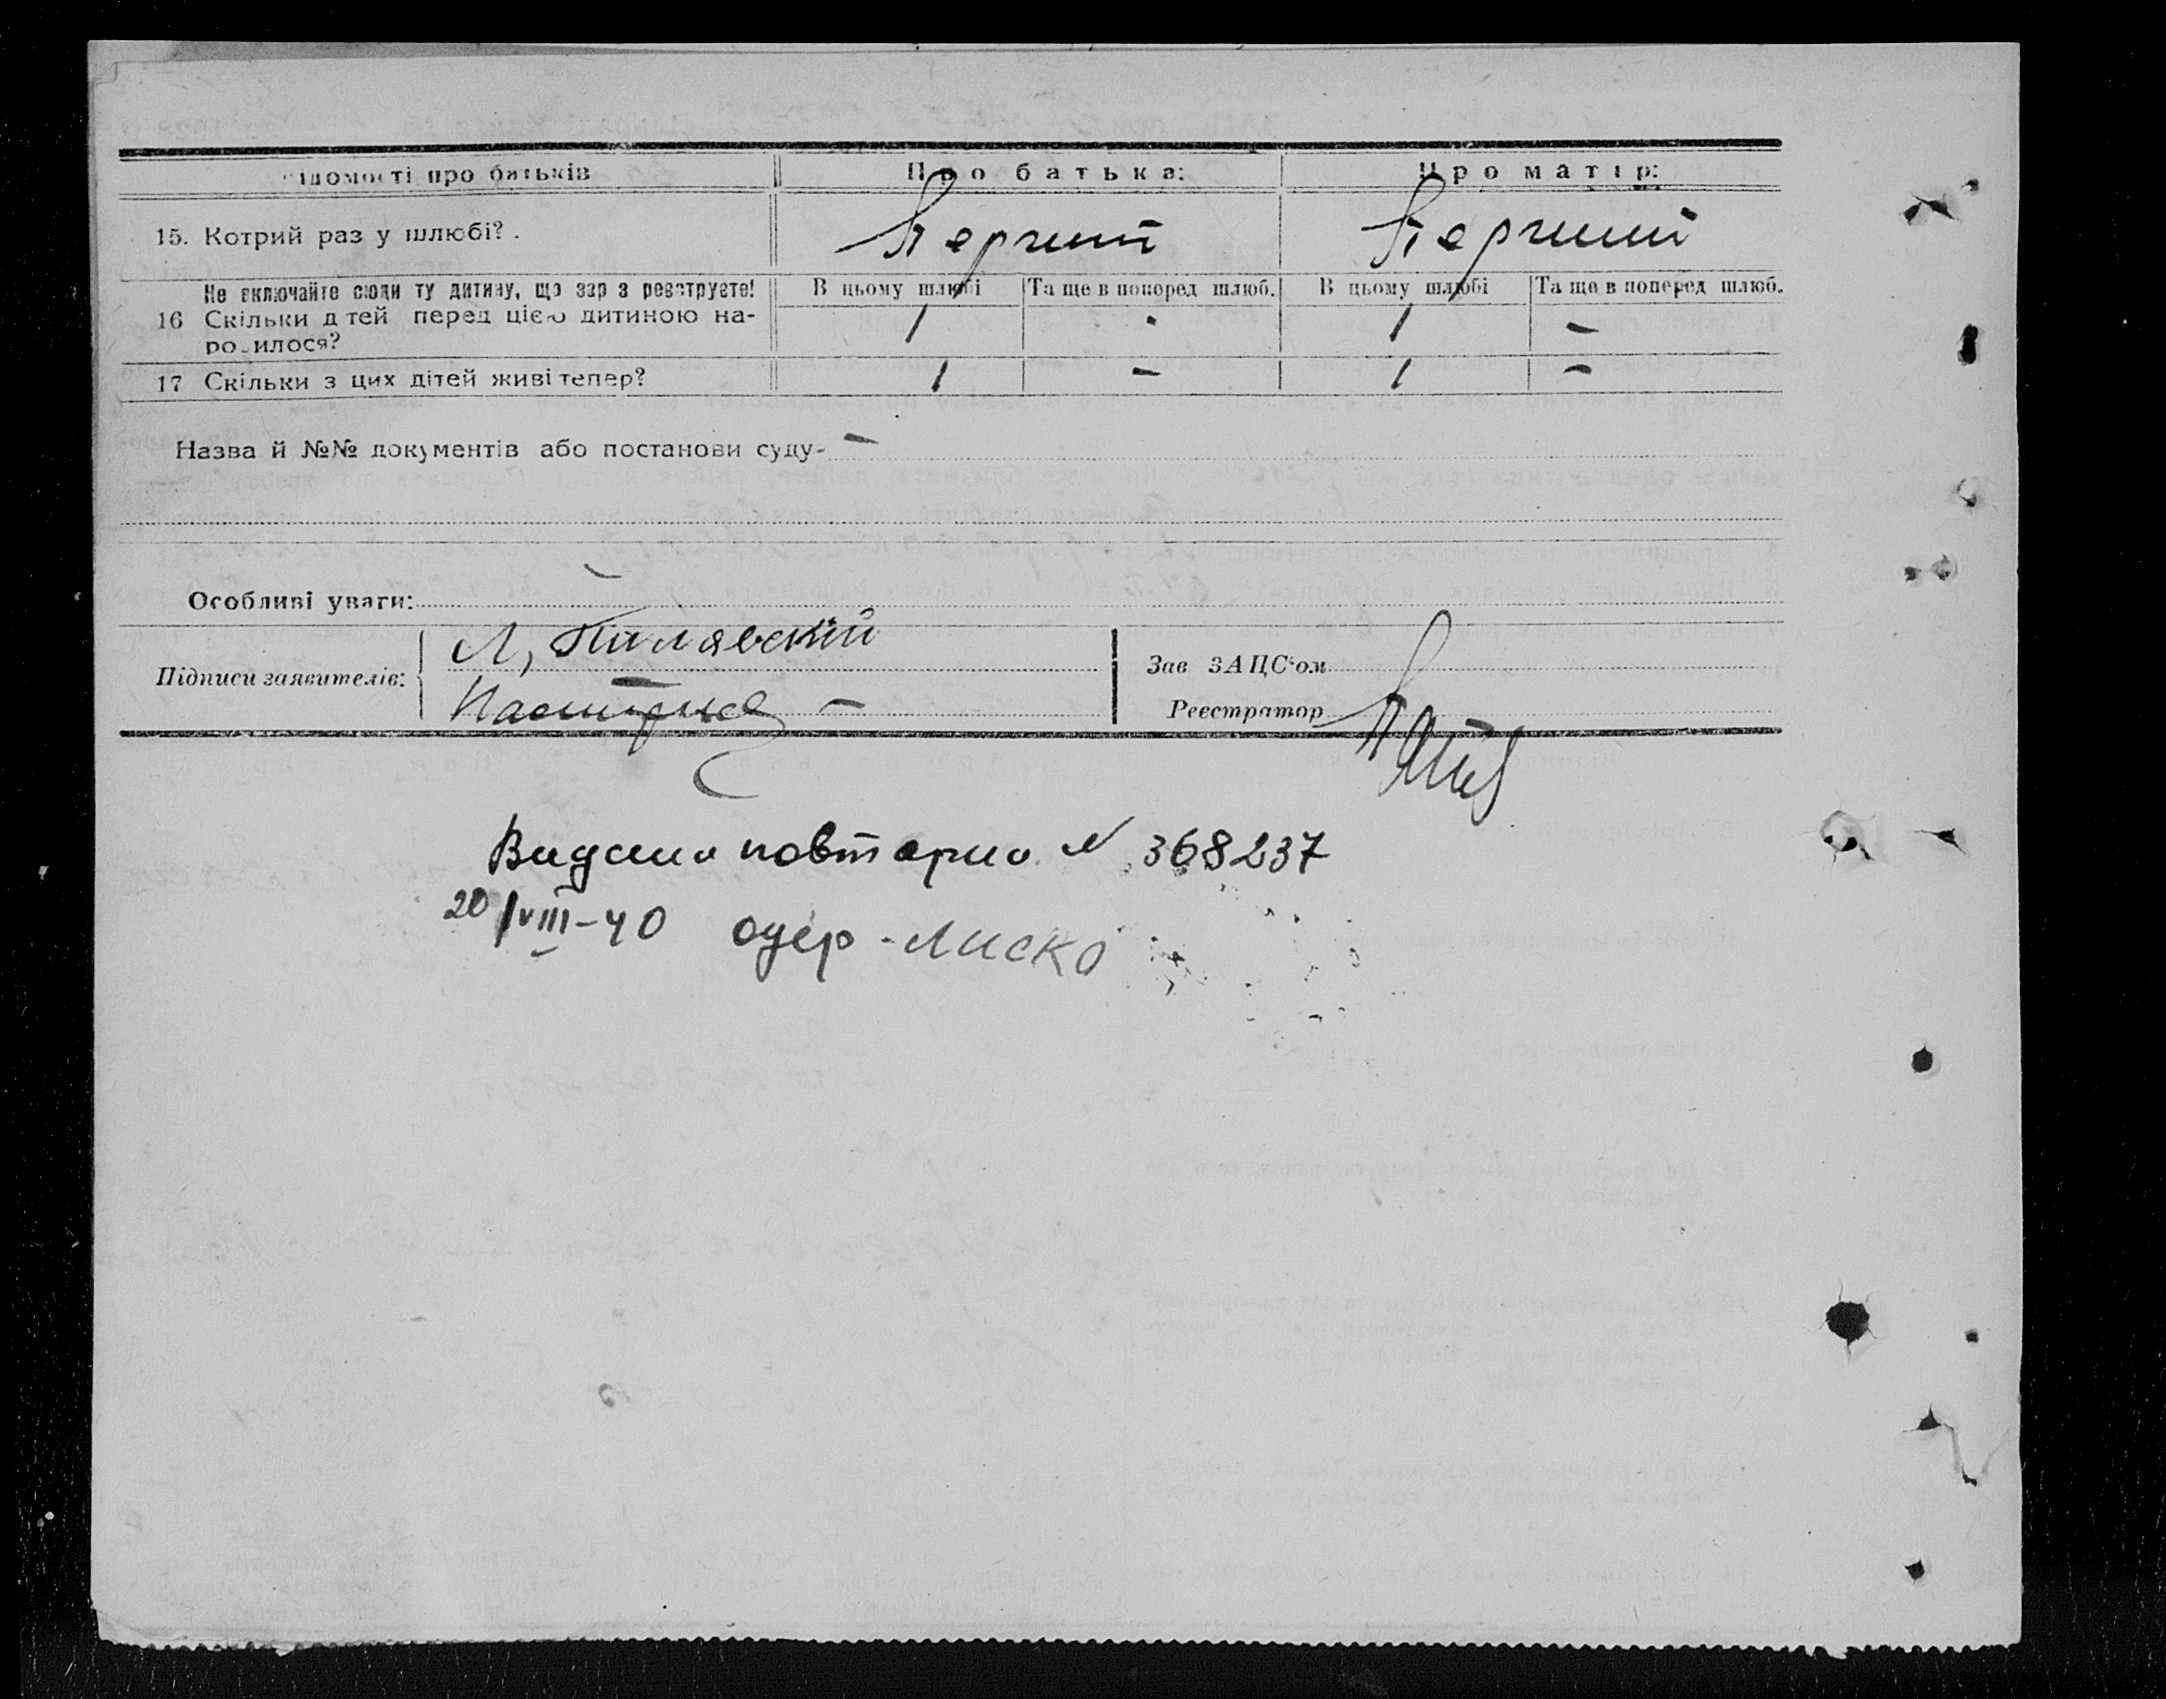 ідомості про батьків Про батька: Про матір:
15. Котрий раз у шлюбі? . Перший Перший
Не включайте сюди ту дитину, що зар з реєструєте! В цьому шлюбі Та ще в поперед шлюб. В цьому шлюбі Та ще в поперед шлюб.
16 Скільки д тей перед цією дитиною на- 1 - 1 -
ро илося?
17 Скільки з цих дітей живі тепер? 1 - 1 -
Назва й №№ документів або постанови суду- -
Особливі уваги:
Підписи заявителів: Л, Пилявский
Зав ЗАЦС'ом
Реєстратор
Видано повторно N 368237
20/VIII-40 одер -